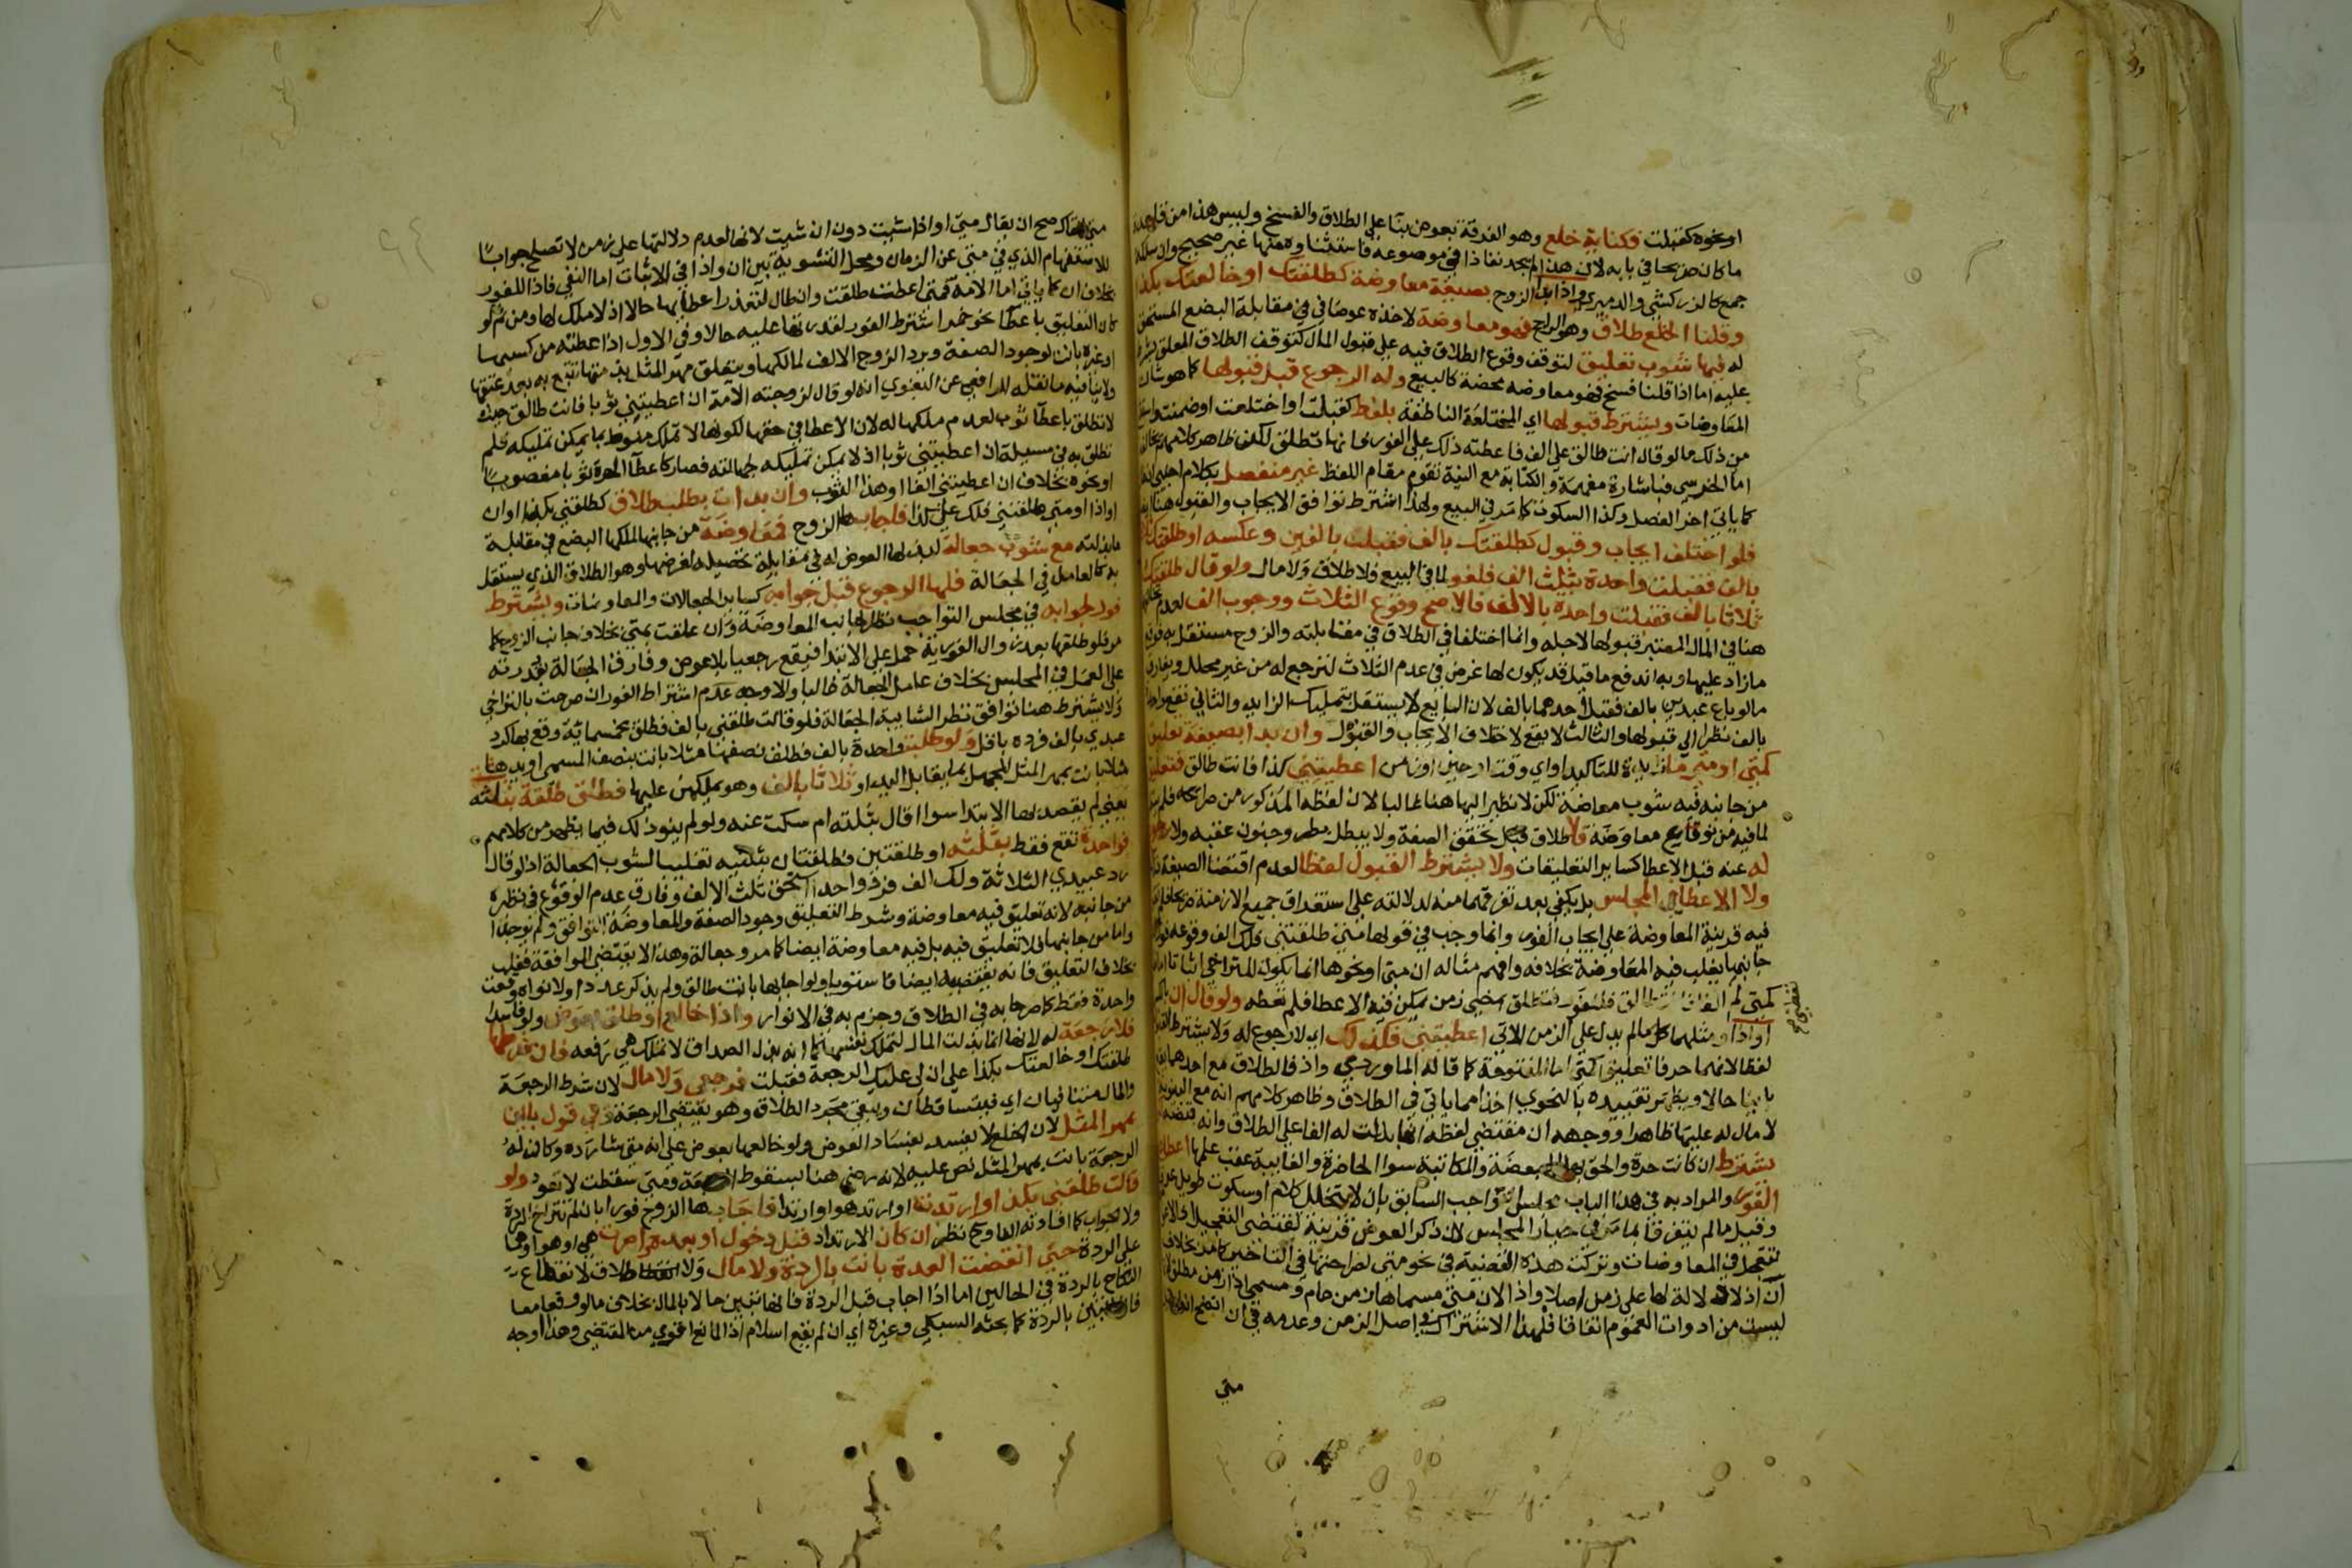 او نحوه كقبلت فكناية خلع وهو الفرقة بعوض بنا على الطلاق والفسخ وليس هذا من قاعدة
ما كان صريحا في بابه لان هذا لم يجد نفاذا في موضوعه فاستثنا وه منها غير صحيح وان سلكه
جمع كالزركشي والدميري واذا بدا الزوج بصيغة معاوضة كطلقتك او خالعتك بكذا
وقلنا الخلع طلاق وهو الراجح فهو معاوضة لاخذه عوضا في مقابلة البضع المستحق
له فيها شوب تعليق لتوقف وقوع الطلاق فيه على قبول المال كتوقف الطلاق المعلق بشرط
عليه اما اذا قلنا فسخ فهو معاوضة محضة كالبيع وله الرجوع قبل قبولها كما هو شان
المعاوضات ويشترط قبولها اي المختلعة الناطقة بلفظ كقبلت او اختلعت او ضمنت
من ذلك ما لو قال انت طالق على الف فاعطته ذلك على الفور فانها تطلق لكن ظاهر كلامهم يخالفه
اما الخرسى فباشارة مفهمة والكتابة مع النية تقوم مقام اللفظ غير منفصل بكلام اجنبي ان
كما ياتي اخر الفصل وكذا السكوت كما مر في البيع ولهذا اشترط توافق الايجاب والقبول هنا ايضا
فلو اختلف ايجاب وقبول كطلقتك بالف فقبلت بالفين وعكسه او طلقتك ثلاثا
بالف فقبلت واحدة بثلث الف فلغو لما في البيع فلا طلاق ولا مال ولو قال طلقتك
ثلاثا بالف فقبلت واحدة بالالف فالاصح وقوع الثلاث ووجوب الف لعدم
هنا في المال المعتبر قبولها لاجله وانما اختلفا في الطلاق في مقابلته والزوج مستقل به فوقع
ما زاد عليها وبه اندفع ما قيل قد يكون لها غرض في عدم الثلاث لترجع له من غير محلل ويفارق
ما لو باع عبدين بالف فقبل احدهما بالف لان البايع لا يستقل بتمليك الزايد والثاني يقع واحدة
بالف نظرا الى قبولها والثالث لا يقع لاختلاف الايجاب والقبول وان بدا بصيغة تعليق
كمتى او متى ما زايدة للتاكيد او اي وقت او حين او زمن اعطيتني كذا فانت طالق فتعليق
من جانبه فيه شوب معاوضة لكن لا نظر اليها هنا غالبا لان لفظه المذكور من صرايحه فلم
لما فيه من نوع معاوضة فلا طلاق قبل تحقق الصفة ولا يبطل بطرو جنون عقبه ولا رجوع
له عنه قبل الاعطا كساير التعليقات ولا يشترط القبول لفظا لعدم اقتضا الصيغة له
ولا الاعطا في المجلس بل يكفي بعد تفرقهما منه لدلالته على استغراق جميع الازمنة صريحا فلم
فيه قرينة المعاوضة على ايجاب الفور وانما وجب في قولها متى طلقتني فلك الف وقوعه فورا
جانبها يغلب فيه المعاوضة بخلافه وافهم مثاله ان متى او نحوها انما يكون للتراخي اثباتا اما
كمتى لم الفا فانت طالق فللفور فتطلق بمضي زمن يمكن فيه الاعطا فلم تعطه ولو قال ان
او اذا او مثلهما كل ما لم يدل على الزمن الاتي اعطيتني فكذلك اي لا رجوع له ولا يشترط القبول
لفظا لانهما حرفا تعليق كمتى اما المفتوحة كما قاله الماوردي واذ فالطلاق مع احدهما يقع
باينا حالا ويظهر تقييده بالنحوي اخذا مما ياتي في الطلاق وظاهر كلامهم انه مع البينونة
لا مال له عليها ظاهرا ووجهه ان مقتضى لفظه انها بذلت له الفا على الطلاق وانه قبضه
يشترط ان كانت حرة والحق بها المبعضة والمكاتبة سوا الحاضرة والغايبة عقب علمها اعطا
الفور والمراد به في هذا الباب مجلس التواجب السابق بان لا يتخلل كلام او سكوت طويل عرفا
وقيل ما لم يتفرقا بما مر في خيار المجلس لان ذكر العوض قرينة تقتضي التعجيل اذ الاعواض
تتعجل في المعاوضات وتركت هذه القضية في نحو متى لصراحتها في التاخير كما مر بخلاف
ان اذ لا دلالة لها على زمن اصلا واذا لان متى مسماها زمن عام ومسمى اذا زمن مطلق لانها
ليست من ادوات العموم اتفاقا فلهذا الاشتراك في اصل الزمن وعدمه في ان اتضح انه
متى
متى القاك صح ان يقال متى او اذا شيت دون ان شيت لانها لعدم دلالتها على زمن لا تصلح جوابا
للاستفهام الذي في متى عن الزمان ومحل التسوية بين ان واذا في الاثبات اما النفي فاذا للفور
بخلاف ان كما ياتي اما الامة فمتى اعطت طلقت وان طال لتعذر اعطايها حالا اذ لا ملك لها ومن ثم لو
كان التعليق باعطا نحو خمر اشترط الفور لقدرتها عليه حالا وفي الاول اذا اعطته من كسبها
او غيره بانت لوجود الصفة ويرد الزوج الالف لمالكها ويتعلق مهر المثل بذمتها تتبع به بعد عتقها
ولا ينافيه ما نقله الرافعي عن البغوي انه لو قال لزوجته الامة ان اعطيتني ثوبا فانت طالق حيث
لا تطلق باعطا ثوب لعدم ملكها له لان الاعطا في حقها لكونها لا تملك منوط بما يمكن تمليكه فلم
تطلق به في مسيلة ان اعطيتني ثوبا اذ لا يمكن تمليكه لجهالته فصار كاعطا الحرة ثوبا مغصوبا
او نحوه بخلاف ان اعطيتني الفا او هذا الثوب وان بدات بطلب طلاق كطلقني بكذا او ان
او اذا او متى طلقتني فلك علي كذا فاجابها الزوج فمعاوضة من جانبها لملكها البضع في مقابلة
ما بذلته مع شوب جعالة لبذلها العوض له في مقابلة تحصيله لغرضها وهو الطلاق الذي يستقل
به كالعامل في الجعالة فلها الرجوع قبل جوابه كساير الجعالات والمعاوضات ويشترط
فور لجوابه في مجلس التواجب نظرا لجانب المعاوضة وان علقت بمتى بخلاف جانب الزوج كما
مر فلو طلقها بعد زوال الفورية حمل على الابتدا فيقع رجعيا بلا عوض وفارق الجعالة بقدرته
على العمل في المجلس بخلاف عامل الجعالة غالبا والاوجه عدم اشتراط الفور ان صرحت بالتراخي
ولا يشترط هنا توافق نظرا لشايبة الجعالة فلو قالت طلقني بالف فطلق بخمسماية وقع بها كرد
عبدي بالف فرده باقل ولو طلبت واحدة بالف فطلق نصفها مثلا بانت بنصف المسمى او يدها
مثلا بانت بمهر المثل للجهل بما يقابل اليد او ثلاثا بالف وهو يملكهن عليها فطلق طلقة بثلثه
يعني لم يقصد بها الابتدا سوا اقال بثلثه ام سكت عنه ولو لم ينو ذلك فيما يظهر من كلامهم
فواحدة تقع فقط بثلثه او طلقتين فطلقتان بثلثيه تغليبا لشوب الجعالة اذ لو قال
رد عبيدي الثلاثة ولك الف فرد واحدا استحق ثلث الالف وفارق عدم الوقوع في نظيره
من جانبه لانه تعليق فيه معاوضة وشرط التعليق وجود الصفة والمعاوضة التوافق ولم يوجدا
واما من جانبها فلا تعليق فيه بل فيه معاوضة ايضا كما مر وجعالة وهذا لا يقتضي الموافقة فغلب
بخلاف التعليق فانه يقتضيها ايضا فاستويا ولو اجابها بانت طالق ولم يذكر عددا ولا نواه وقعت
واحدة فقط كما صرحا به وجزم به في الانوار واذا خالع او طلق بعوض ولو فاسدا
فلا رجعة له لانها انما بذلت المال لتملك نفسها كما انه بذل الصداق لا تملك هي رفعه فان شرطها
طلقتك او خالعتك بكذا على ان لي عليك الرجعة فقبلت فرجعي ولا مال لان شرط الرجعة
والمال متنافيان اي فيتساقطان ويبقى مجرد الطلاق وهو يقتضي الرجعة وفي قول باين
بمهر المثل لان الخلع لا يفسد بفساد العوض ولو خالعها بعوض على انه متى شا رده وكان له
الرجعة بانت بمهر المثل نص عليه لانه رضي هنا بسقوط الرجعة ومتى سقطت لا تعود ولو
قالت طلقني بكذا وارتدت او ارتد هو او ارتدا فاجابها الزوج فورا بان لم تتراخ الردة
ولا الجواب كما افادته الفا وجح نظر ان كان الارتداد قبل دخول او بعده واصرت هي او هو او هما
على الردة حتى انقضت العدة بانت بالردة ولا مال ولا طلاق لانقطاع
النكاح بالردة في الحالين اما اذا اجاب قبل الردة فانها تبين حالا بالمال بخلاف ما لو وقعا معا
بالردة كما بحثه السبكي وغيره اي ان لم يقع اسلام اذ المانع اقوى من المقتضي وهذا اوجه